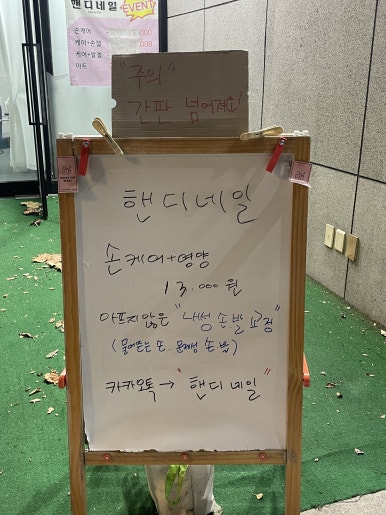 핸디네일
EVENT
손케어
케어+손젤
케어+발젤
아트
"주의"
간판 넘어져요!
핸디네일
손케어+영양
13.000원
아프지않은 "내성 손발 교정"
(물어뜯는 손. 문제성 손발)
카카오톡→ "핸디네일"